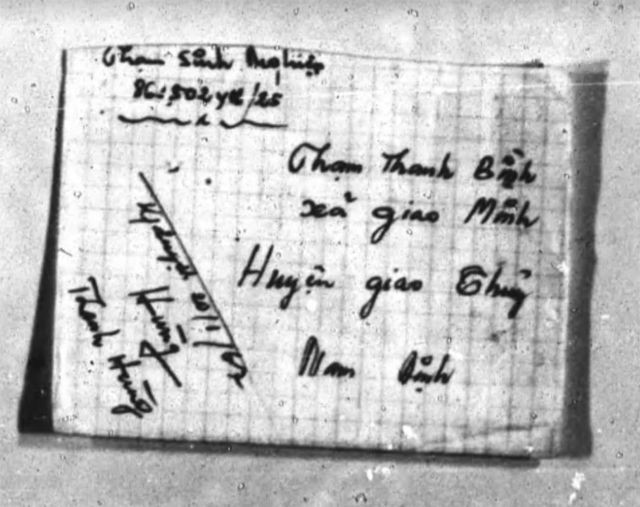 Phạm Sinh Nghiệp
Phạm Thanh Bình
xã giao Minh
Huyện giao Thủy
Nam Định
Ký duyệt 20/1/67
Hùng
Thanh Hùng